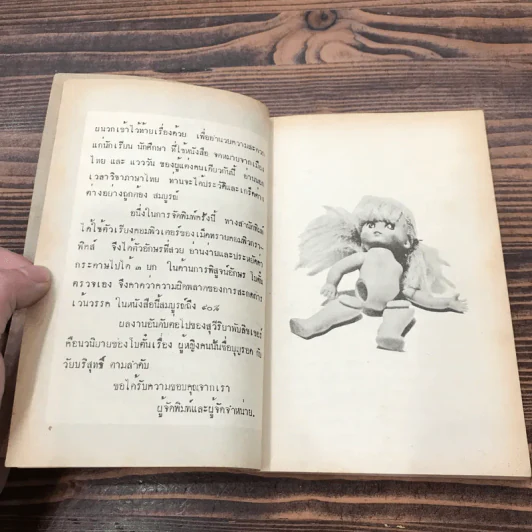 ผนวกเข้าไว้ท้ายเรื่องด้วย เพื่ออำนวยความสะดวก
แก่นักเรียน นักศึกษา ที่ใช้หนังสือ จดหมายจากเมือง
ไทย และ แววรัน ของผู้แต่งคนเดียวกันนี้
เวลาวิชาภาษาไทย ท่านจะได้ประวัติและเกร็ดต่าง
ต่างอย่างถูกต้อง สมบูรณ์
อนึ่งในการจัดพิมพ์ครั้งนี้ ทางสำนักพิมพ์
ได้ใช้ตัวเรียงคอมพิวเตอร์ของเม็ดทรายคอมพิวกรา-
ฟิคส์ จึงได้ตัวอักษรที่สวย อ่านง่ายและประหยัดค่า
กระดาษไปได้ ๓ ยก ในด้านการพิสูจน์อักษร
ตรวจเอง จึงคาดว่าความผิดพลาดของการสะกดการ
เว้นวรรค ในหนังสือนี้สมบูรณ์ถึง ๙๐%
ผลงานอันดับต่อไปของสุวิริยาพับลิชเชอร์
คือนวนิยายของโบตั๋นเรื่อง ผู้หญิงคนนั้นชื่อบุญรอด กับ
วัยบริสุทธิ์ ตามลำดับ
ขอได้รับความขอบคุณจากเรา
ผู้จัดพิมพ์และผู้จัดจำหน่าย.